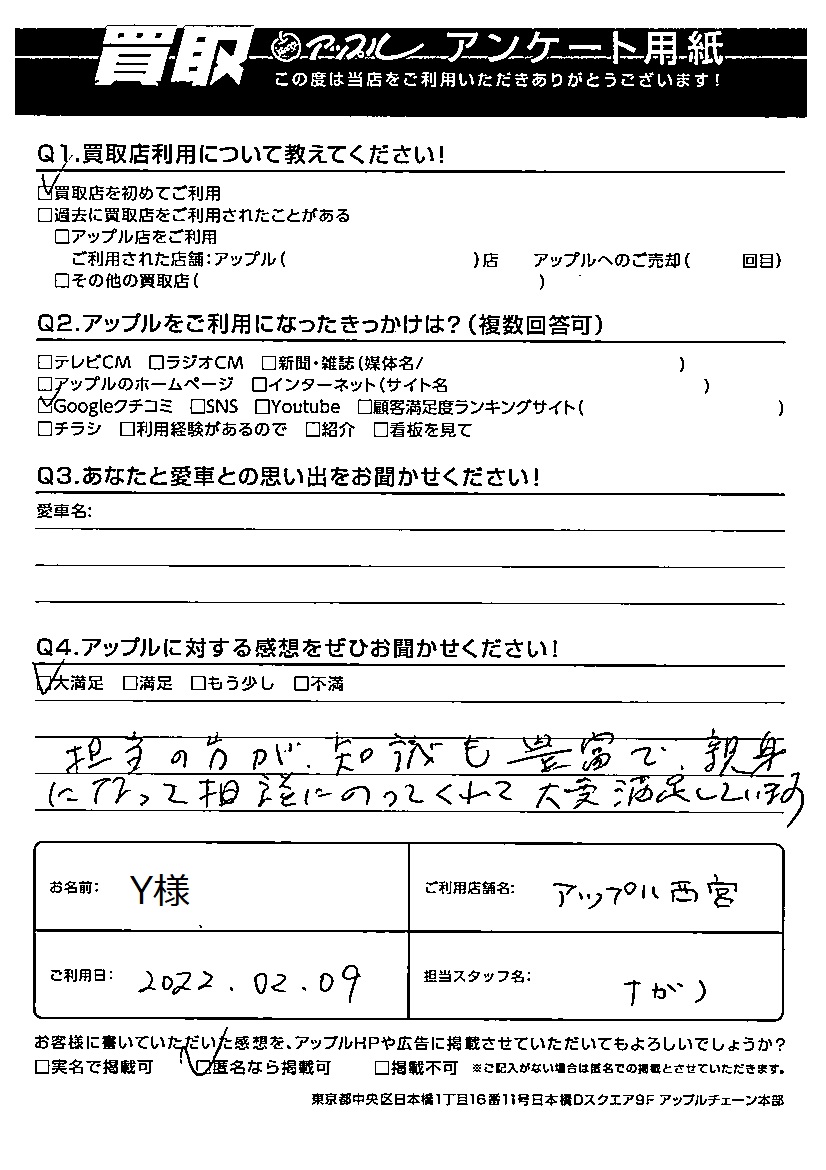 買取 アップル アンケート用紙
この度は当店をご利用いただきありがとうございます!
Q1.買取店利用について教えてください!
☑買取店を初めてご利用
□過去に買取店をご利用されたことがある
□アップル店をご利用
ご利用された店舗:アップル( )店 アップルへのご売却( 回目)
□その他の買取店( )
Q2.アップルをご利用になったきっかけは?(複数回答可)
□テレビCM □ラジオCM □新聞・雑誌(媒体名/ )
□アップルのホームページ □インターネット(サイト名 )
☑Googleクチコミ □SNS □Youtube □顧客満足度ランキングサイト( )
□チラシ □利用経験があるので □紹介 □看板を見て
Q3.あなたと愛車との思い出をお聞かせください!
愛車名:
Q4.アップルに対する感想をぜひお聞かせください!
☑大満足 □満足 □もう少し □不満
担当の方が、知識も豊富で、親身
になって相談にのってくれて大変満足しています
お名前: Y様 ご利用店舗名: アップル西宮
ご利用日: 2022.02.09 担当スタッフ名:
お客様に書いていただいた感想を、アップルHPや広告に掲載させていただいてもよろしいでしょうか?
□実名で掲載可 ☑匿名なら掲載可 □掲載不可 ※ご記入がない場合は匿名での掲載とさせていただきます。
東京都中央区日本橋1丁目16番11号日本橋Dスクエア9F アップルチェーン本部